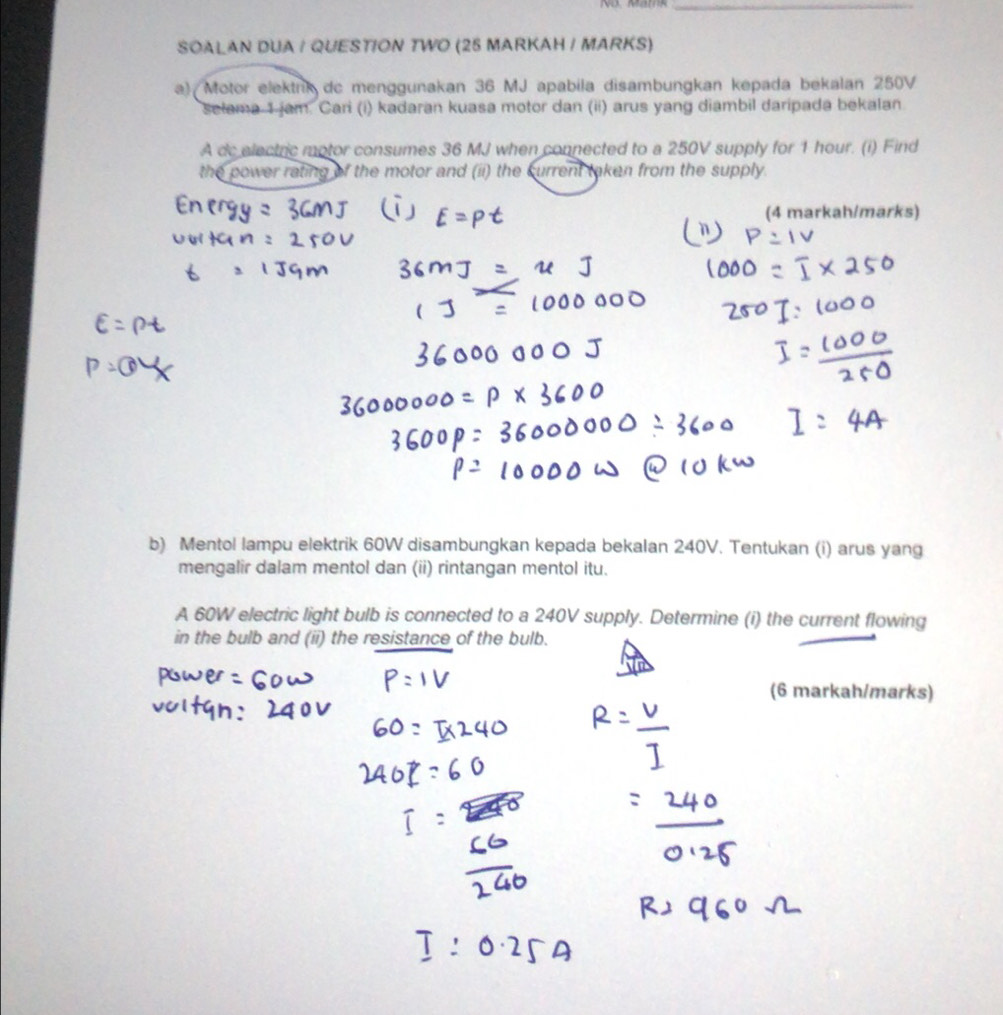 No. Matrik
SOALAN DUA / QUESTION TWO (25 MARKAH / MARKS)
a) Motor elektrik dc menggunakan 36 MJ apabila disambungkan kepada bekalan 250V
selama 1 jam. Cari (i) kadaran kuasa motor dan (ii) arus yang diambil daripada bekalan.
A dc electric motor consumes 36 MJ when connected to a 250V supply for 1 hour. (i) Find
the power rating of the motor and (ii) the current taken from the supply.
(4 markah/marks)
Energy = 36MJ
voltan = 250V
t = 1 Jam
E = pt
(i) E = pt
36MJ = x J
1 J = 1000 000
36000 000 J
36000000 = P x 3600
3600P = 36000000 ÷ 3600
P = 10000 W @ 10 kW
(ii) P = IV
1000 = I x 250
250 I = 1000
I = 1000
250
I = 4A
b) Mentol lampu elektrik 60W disambungkan kepada bekalan 240V. Tentukan (i) arus yang
mengalir dalam mentol dan (ii) rintangan mentol itu.
A 60W electric light bulb is connected to a 240V supply. Determine (i) the current flowing
in the bulb and (ii) the resistance of the bulb.
(6 markah/marks)
power = 60W
voltan: 240V
P = IV
60 = I x 240
240I = 60
I =
60
240
I : 0.25 A
R = V
I
= 240
0.25
R = 960 Ω